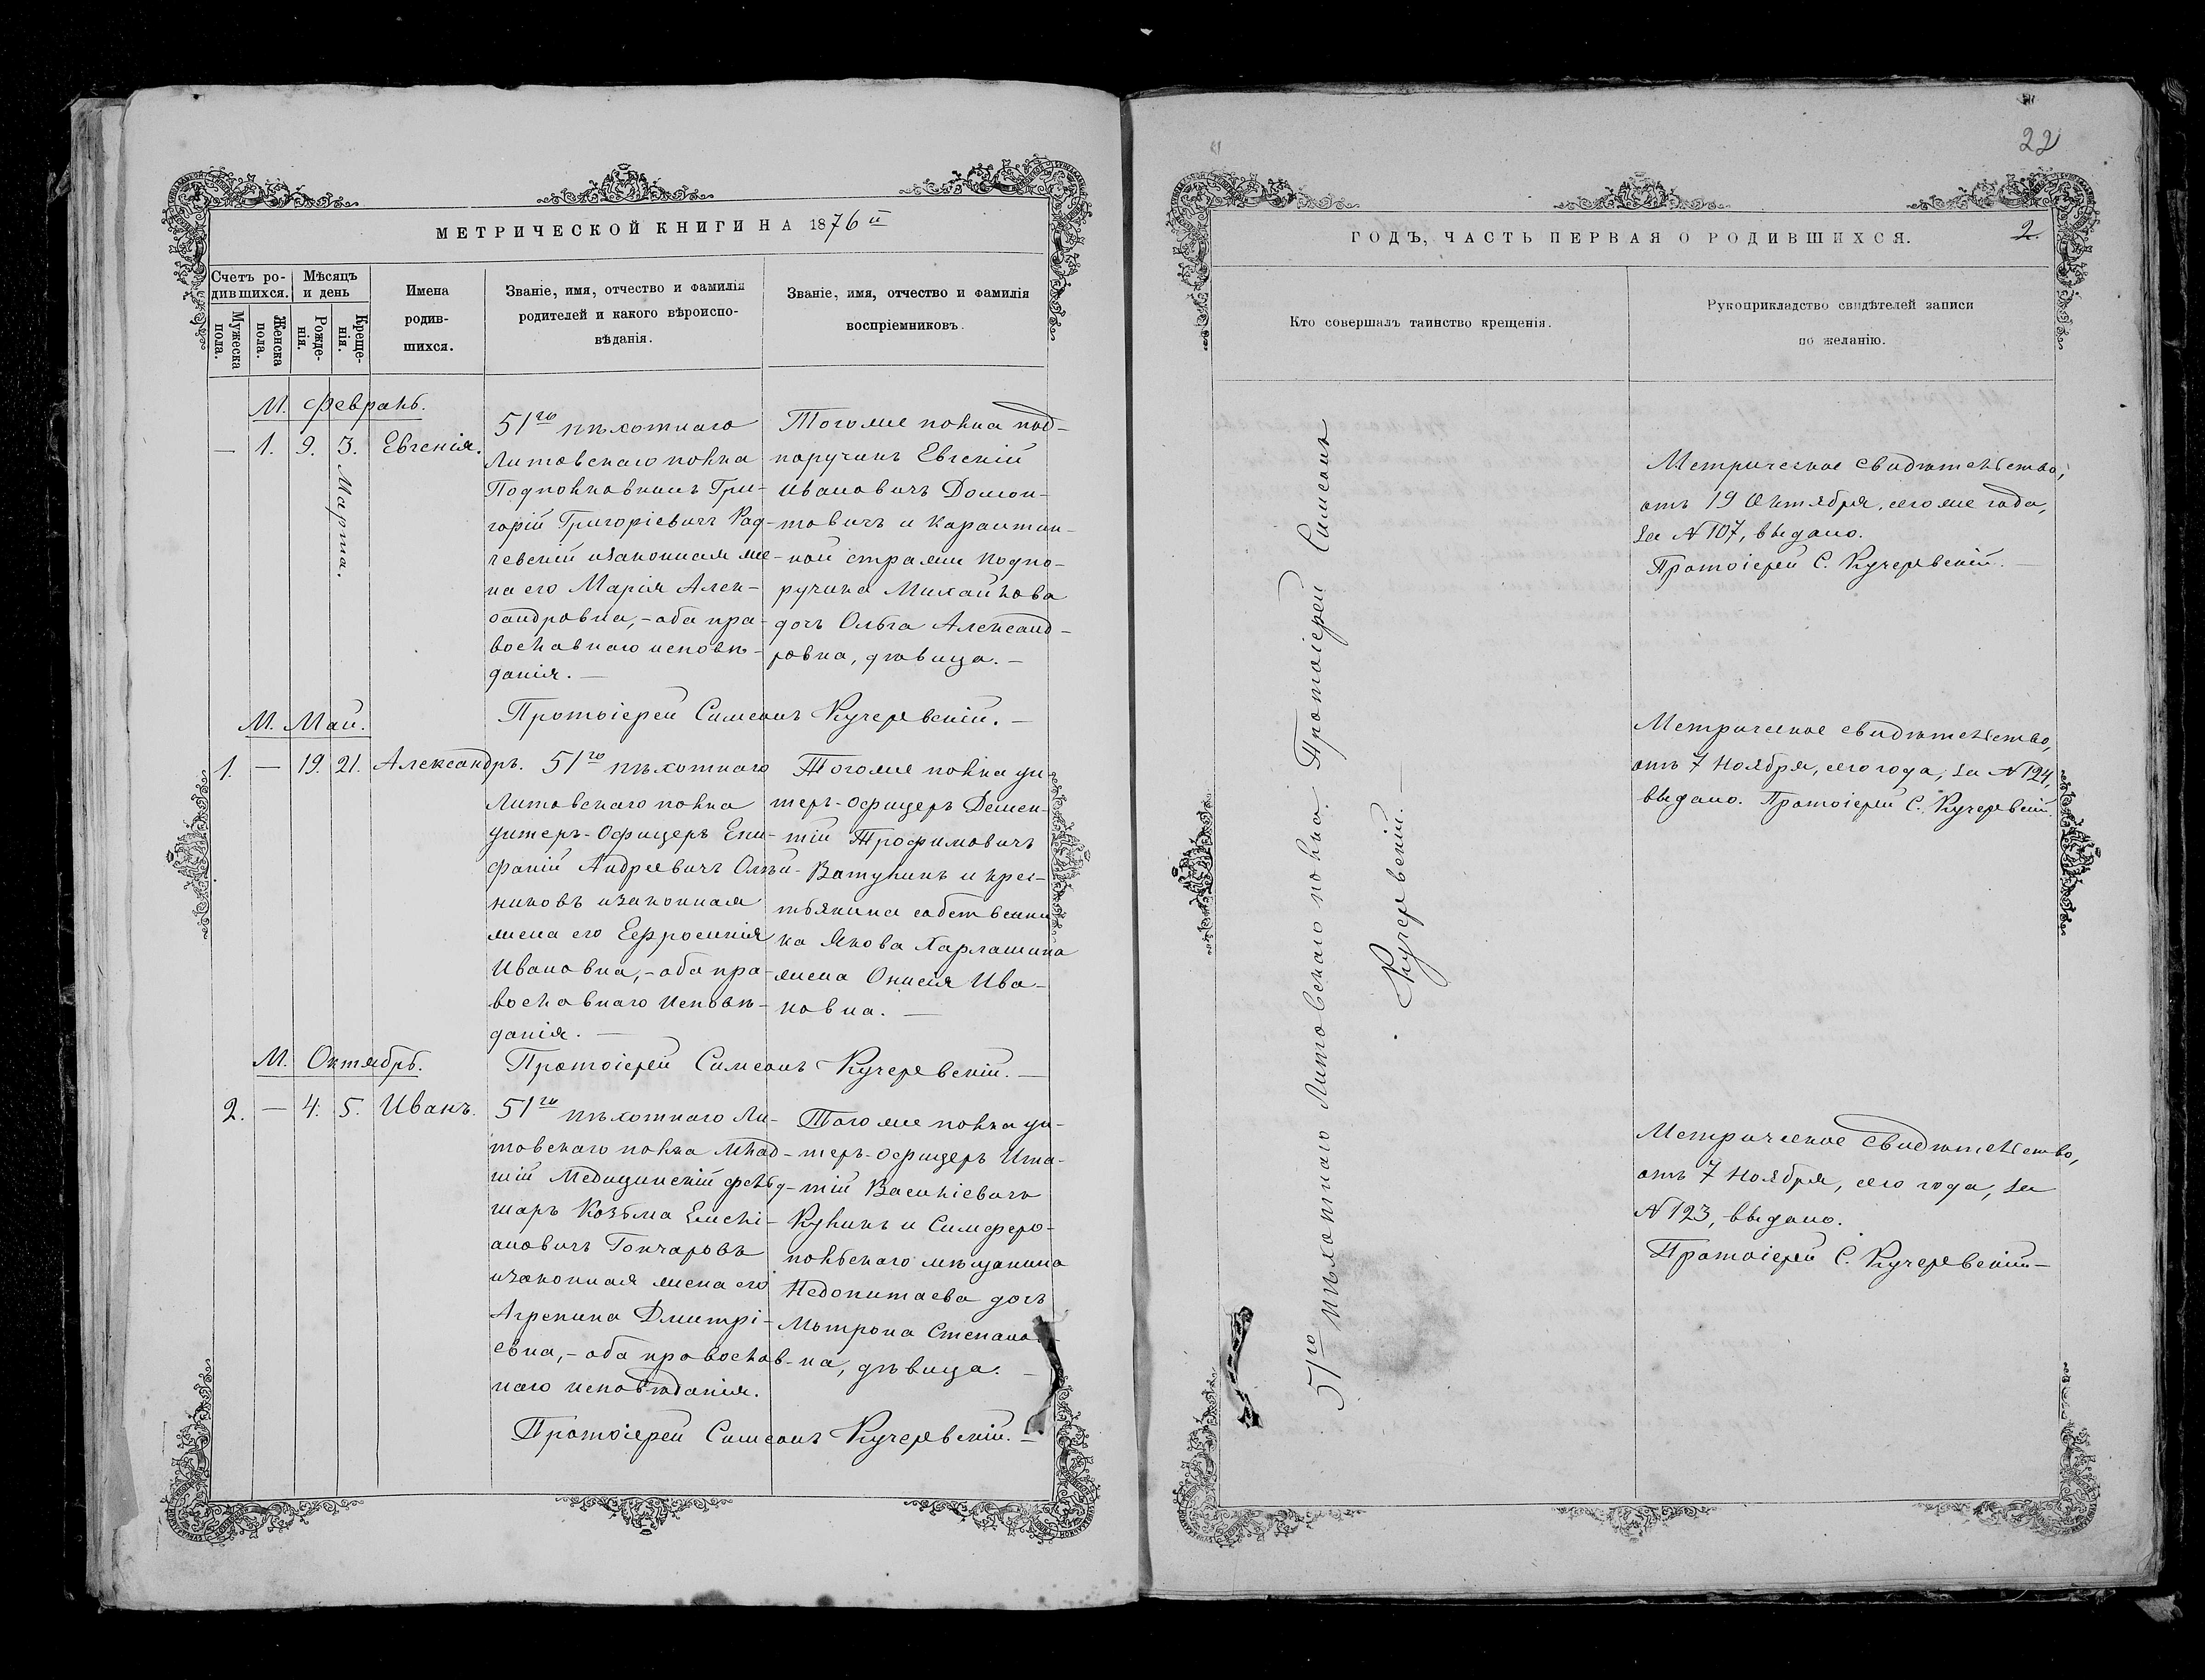 МЕТРИЧЕСКОЙ КНИГИ НА 1876й
Счетъ ро-
дившихся.
Мѣсяцъ
и день
Мужеска
пола.
Женска
пола.
Рожде-
нія.
Креще-
нія.
Имена
родив-
шихся.
Званіе, имя, отчество и фамилія
родителей и какого вѣроиспо-
вѣданія.
Званіе, имя, отчество и фамилія
воспріемниковъ.
М. Февраль.
— 1. 9. 3. Евгенія.
Марта.
51го пѣхотнаго
Литовскаго полка
Подполковникъ Гри-
горій Григоріевичъ Рад-
чевскій изаконная же-
на его Марія Алек-
сандровна,- оба пра-
вославнаго исповѣ-
данія. —
Тогоже полка под-
поручикъ Евгеній
Ивановичъ Домон-
товичъ и Карантин-
ной стражи подпо-
ручика Михайлова
дочь Ольга Александ-
ровна, дѣвица. —
Протоіерей Симеонъ Кучеревскій. —
М. Май.
1. — 19. 21. Александръ.
51го пѣхотнаго
Литовскаго полка
унтеръ-офицеръ Епи-
фаній Андреевичъ Олѣй-
никовъ изаконная
жена его Ефросинія
Ивановна,- оба пра-
вославнаго исповѣ-
данія. —
Тогоже полка ун-
теръ-офицеръ Демен-
тій Трофимовичъ
Ватулинъ и крес-
тьянина собственни
ка Якова Харлашина
жена Онисія Ива-
новна. —
Протоіерей Симеонъ Кучеревскій. —
М. Октябрь.
2. — 4. 5. Иванъ.
51го пѣхотнаго Ли-
товскаго полка млад-
шій Медицинскій фельд-
шеръ Козьма Емелі-
ановичъ Гончаровъ
изаконная жена его
Агрепина Дмитрі-
евна,- оба православ-
наго исповѣданія.
Тогоже полка ун-
теръ-офицеръ Игна-
тій Василіевичъ
Кулинъ и Симферо-
польскаго мѣщанина
Недопитаева дочь
Мотрона Степанов-
на, дѣвица. —
Протоіерей Симеонъ Кучеревскій. —
22
ГОДЪ, ЧАСТЬ ПЕРВАЯ О РОДИВШИХСЯ.
2.
Кто совершалъ таинство крещенія.
Рукоприкладство свидѣтелей записи
по желанію.
51го пѣхотнаго Литовскаго полка Протоіерей Симеонъ
Кучеревскій. —
Метрическое свидѣтельство,
отъ 19 Октября, сего же года,
за № 107, выдано.
Протоіерей С. Кучеревскій. —
Метрическое свидѣтельство,
отъ 7 Ноября, сего года, за № 124,
выдано. Протоіерей С. Кучеревскій.
Метрическое свидѣтельство,
отъ 7 Ноября, сего года, за
№ 123, выдано.
Протоіерей С. Кучеревскій —